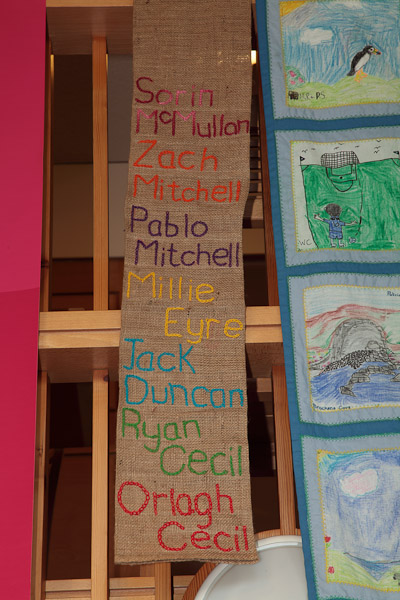 Sorin
McMullan
Zach
Mitchell
Pablo
Mitchell
Millie
Eyre
Jack
Duncan
Ryan
Cecil
Orlagh
Cecil
WC